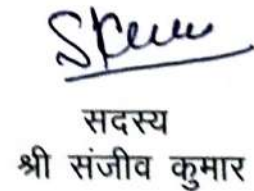 सदस्य
श्री संजीव कुमार